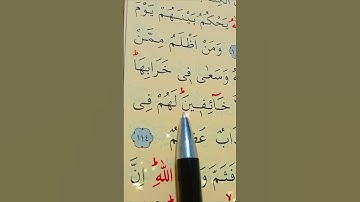 يَحْكُمُ بَيْنَهُمْ يَوْمَ
وَمَنْ اَظْلَمُ مِمَّنْ
وَسَعٰى فٖى خَرَابِهَاۜ
خَٓائِفٖينَۜ لَهُمْ فِى
عَظٖيمٌ ﴿١١٤﴾
فَثَمَّ اللّٰهِۜ اِنَّ